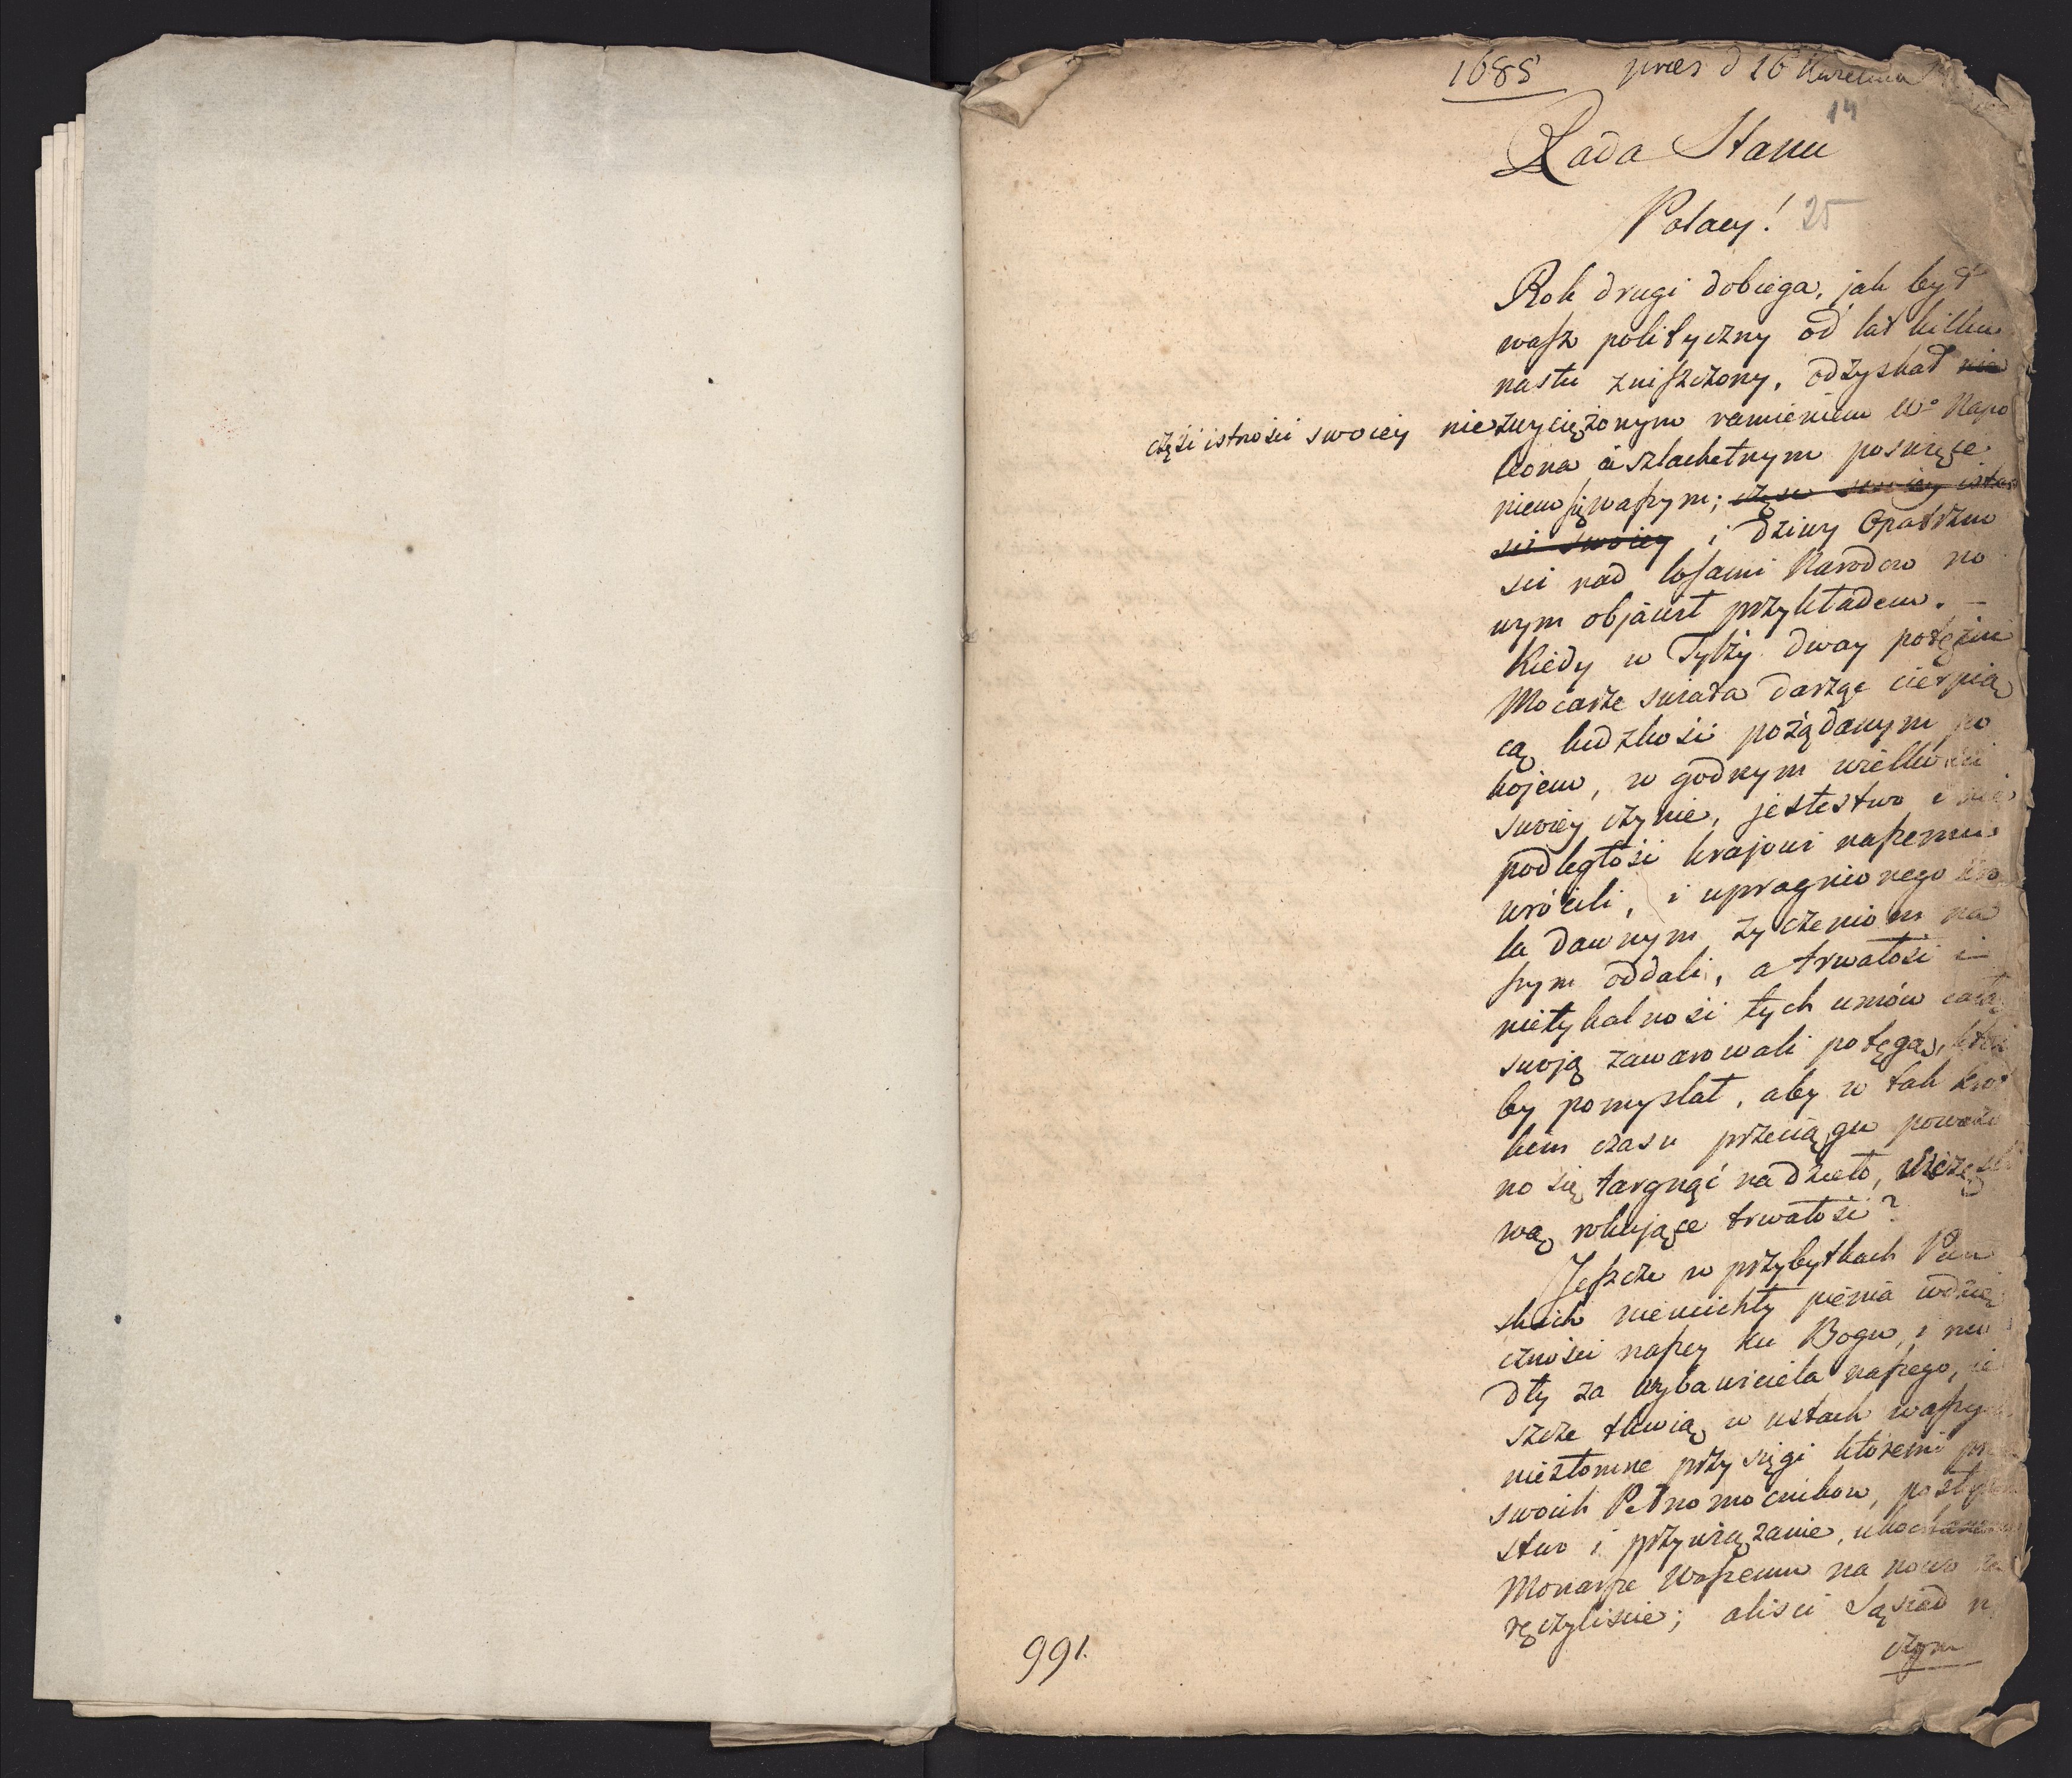 1685 præs d 16 Kwietnia
14
Rada Stanu
Polacy! 25
Rok drugi dobiega, jak byt
wasz polityczny od lat kilku
nastu zniszczony, odzyskał nie
części istności swoiey niezwyciężonym ramieniem Wo Napo
leona i szlachetnym poswięce
niem się waszym; część swoiey istno
ści swoiey i dziwy Opatrzno
sci nad losami Narodow no
wym objawił przykładem. —
Kiedy w Tylży dway potężni
Mocarze swiata darząc cierpią
cą ludzkość pożądanym po
kojem, w godnym wielkości
swoiey czynie, jestestwo i nie
podległość krajowi naszemu
wrócili, i upragnionego Kró
la dawnym życzeniom na
szym oddali, a trwałość i
nietykalność tych umów całą
swoją zawarowali potęgą, któż
by pomyslał, aby w tak krót
kim czasu przeciągu poważo
no się targnąć na dzieło,
wą rokujące trwałość?
Jeszcze w przybytkach Pań
skich nieucichły pienia wdzię
czności naszey ku Bogu, i mo
dły za wybawiciela naszego, je
szcze tkwią w ustach waszych
niezłomne przysięgi któremi przez
swoich Pełnomocnikow,
stwo i przywiązanie, ukochanemu
Monarsze Waszemu na nowo za
ręczyliscie; alisci Sąsiad n
czym
991.